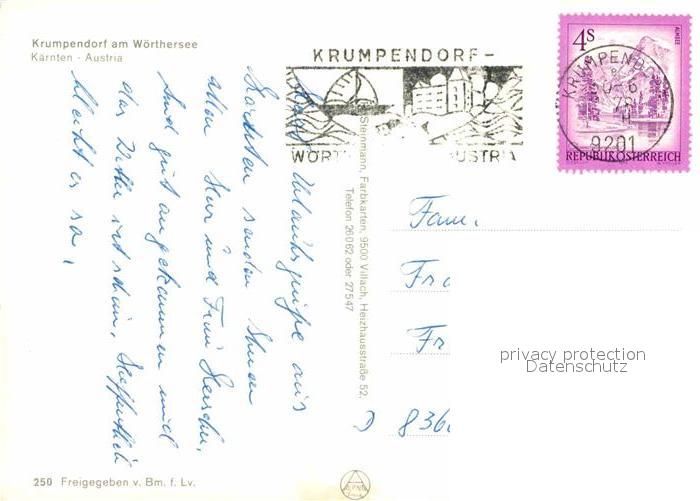 Krumpendorf am Wörthersee
Kärnten - Austria
KRUMPENDORF -
AUSTRIA
4S
ALMSEE
KRUMPEND
9201
REPUBLIK ÖSTERREICH
Urlaubsgrüße aus
Kärnten senden Ihnen
allen Herr und Frau
Sind gut angekommen und
das Wetter ist schön, hoffentlich
bleibt es so,
Steinmann, Farbkarten, 9500 Villach, Heizhausstraße 52,
Telefon 26062 oder 27547
Fam.
Fr
D 836
privacy protection
Datenschutz
250 Freigegeben v. Bm. f. Lv.